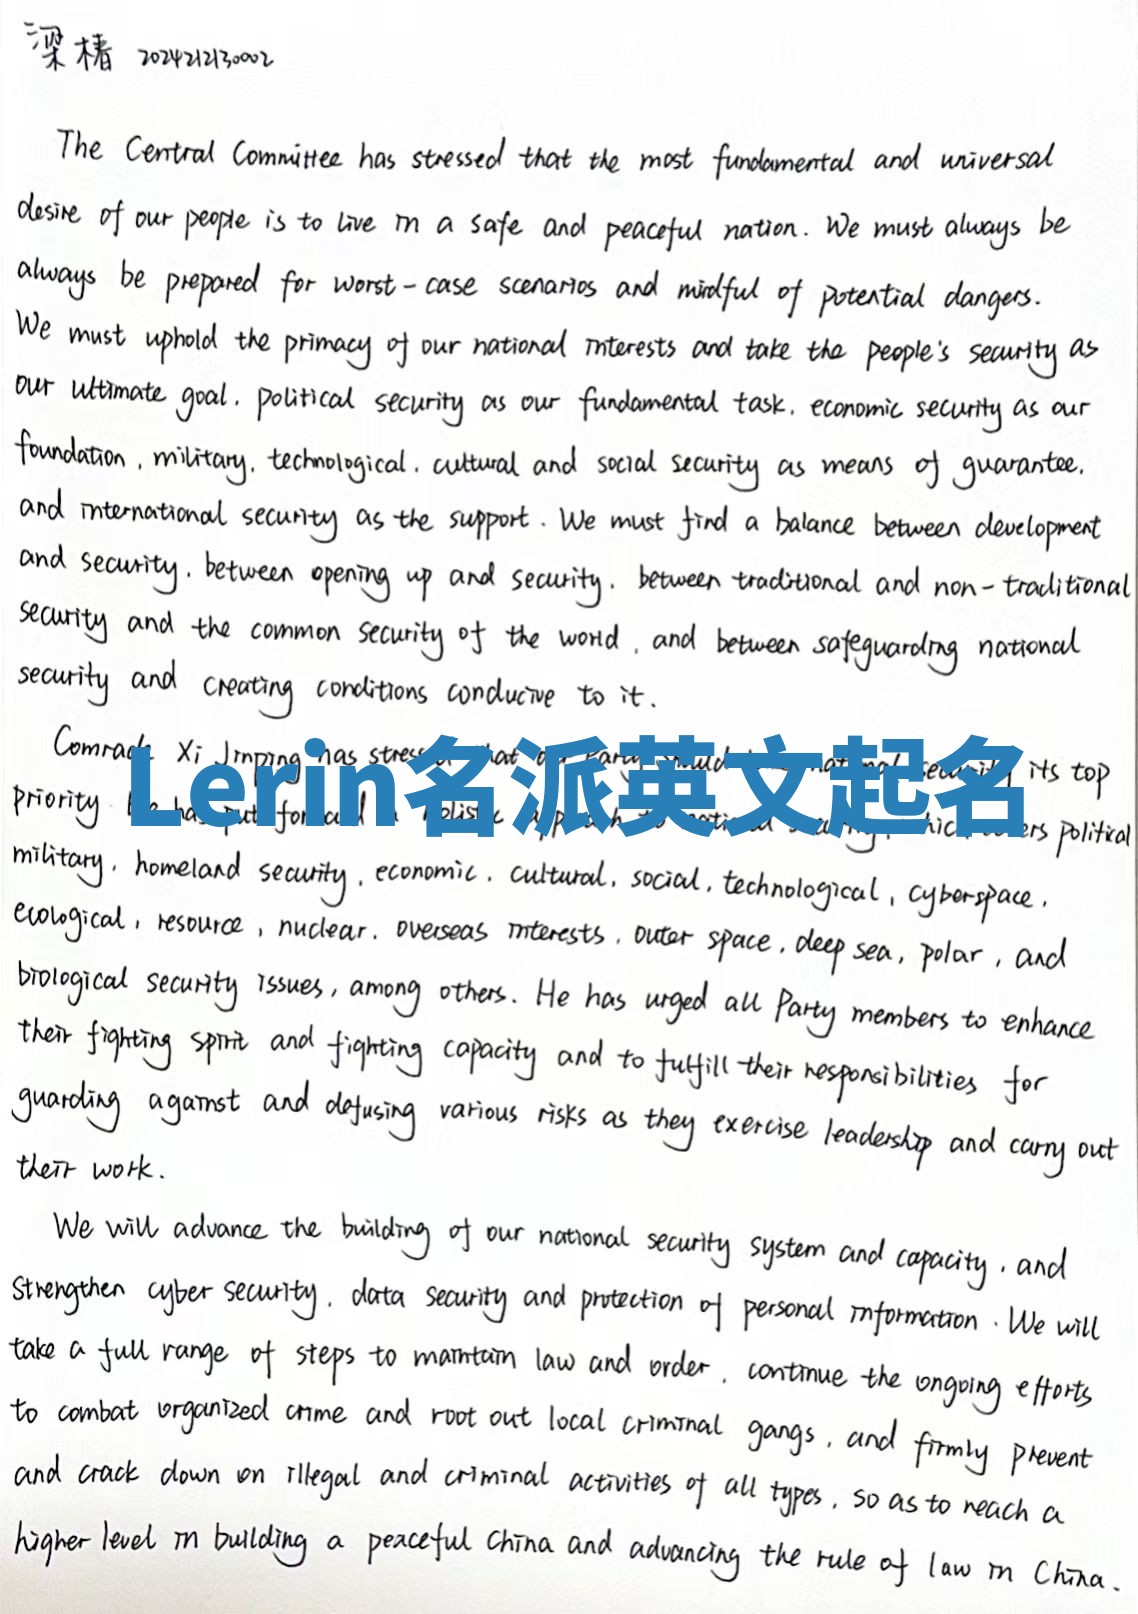 梁椿 2024212130002
The Central Committee has stressed that the most fundamental and universal
desire of our people is to live in a safe and peaceful nation. We must always be
always be prepared for worst-case scenarios and mindful of potential dangers.
We must uphold the primacy of our national interests and take the people's security as
our ultimate goal, political security as our fundamental task, economic security as our
foundation, military, technological, cultural and social security as means of guarantee,
and international security as the support. We must find a balance between development
and security, between opening up and security, between traditional and non-traditional
security and the common security of the world, and between safeguarding national
security and creating conditions conducive to it.
Comrade Xi Jinping has stressed that our Party should national security its top
Lerin名派英文起名
priority. He has put forward a holistic approach to national security, which covers political
military, homeland security, economic, cultural, social, technological, cyberspace,
ecological, resource, nuclear, overseas interests, outer space, deep sea, polar, and
biological security issues, among others. He has urged all Party members to enhance
their fighting spirit and fighting capacity and to fulfill their responsibilities for
guarding against and defusing various risks as they exercise leadership and carry out
their work.
We will advance the building of our national security system and capacity, and
strengthen cyber security, data security and protection of personal information. We will
take a full range of steps to maintain law and order, continue the ongoing efforts
to combat organized crime and root out local criminal gangs, and firmly prevent
and crack down on illegal and criminal activities of all types, so as to reach a
higher level in building a peaceful China and advancing the rule of law in China.